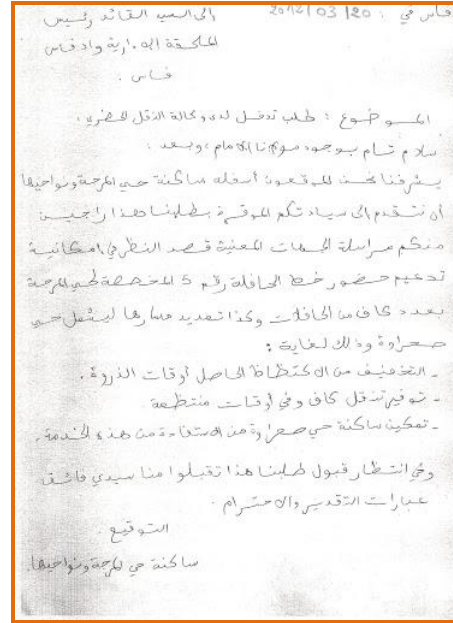 فاس في : 20/03/2012
إلى السيد القائد رئيس
الملحقة الإدارية واد فاس
فاس .
الموضوع : طلب تدخل لدى وكالة النقل الحضري .
سلام تام بوجود مولانا الإمام، وبعد :
يشرفنا نحن الموقعون أسفله ساكنة حي المرجة ونواحيها
أن نتقدم إلى سيادتكم الموقرة بطلبنا هذا راجين
منكم مراسلة الجهات المعنية قصد النظر في إمكانية
تدعيم حضور خط الحافلة رقم 5 المخصصة لحي المرجة
بعدد كاف من الحافلات وكذا تمديد مسارها ليشمل حي
صهراوة وذلك لغاية :
- التخفيف من الاكتظاظ الحاصل أوقات الذروة .
- توفير تنقل كاف وفي أوقات منتظمة
- تمكين ساكنة حي صهراوة من الاستفادة من هذه الخدمة .
وفي انتظار قبول طلبنا هذا تقبلوا منا سيدي فائق
عبارات التقدير والاحترام .
التوقيع .
ساكنة حي المرجة ونواحيها.